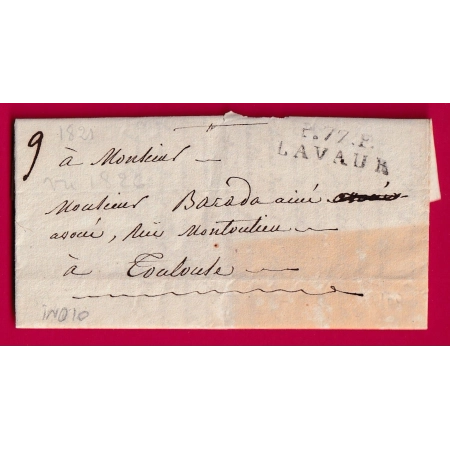 1821
9
P.77.P.
LAVAUR
à Monsieur
Monsieur Barada ainé
avoué, Rüe Montoulieu
à Toulouse